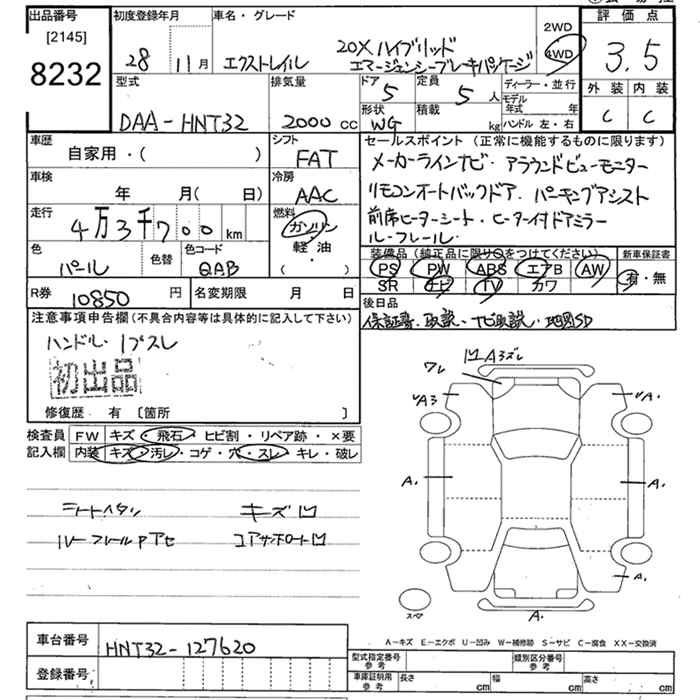 出品番号
[2145]
8232
初度登録年月
28 11月
車名・グレード
エクストレイル
20X ハイブリッド
エマージェンシーブレーキパッケージ
2WD
4WD
評価点
3.5
外装 内装
C C
型式
DAA-HNT32
排気量
2000 cc
ドア
5
定員
5人
形状
WG
積載
kg
ディーラー・並行
モデル年式 年
ハンドル 左・右
車歴
自家用・( )
シフト
FAT
車検
年 月(日)
冷房
AAC
走行
4万3千700km
燃料
ガソリン
軽・油
( )
色
パール
色替
色コード
QAB
セールスポイント(正常に機能するものに限ります)
メーカーラインナビ・アラウンドビューモニター
リモコンオートバックドア・パーキングアシスト
前席ヒーターシート・ヒーター付ドアミラー
ルーフレール
装備品(純正品に限り○をつけてください)
PS PW ABS エアB AW
SR ナビ TV カワ
新車保証書
有・無
R券
10850円
名変期限 月 日
後日品
保証書、取説、ナビ取説、地図SD
注意事項申告欄(不具合内容等は具体的に記入して下さい)
ハンドル・1プスレ
初出品
修復歴 有 〔箇所 〕
検査員記入欄
FW キズ・飛石・ヒビ割・リペア跡・×要
内装 キズ・汚レ・コゲ・穴・スレ・キレ・破レ
シートヘタリ キズ凹
ルーフレールアセ コアサポート凹
ワレ
凹A3ズレ
A3
A.
A.
A.
A.
A.
スペア
A-キズ E-エクボ U-凹み W-補修跡 S-サビ C-腐食 XX-交換済
車台番号
HNT32-127620
登録番号
型式指定番号参考
類別区分番号参考
車庫証明用参考
長さ cm
幅 cm
高さ cm